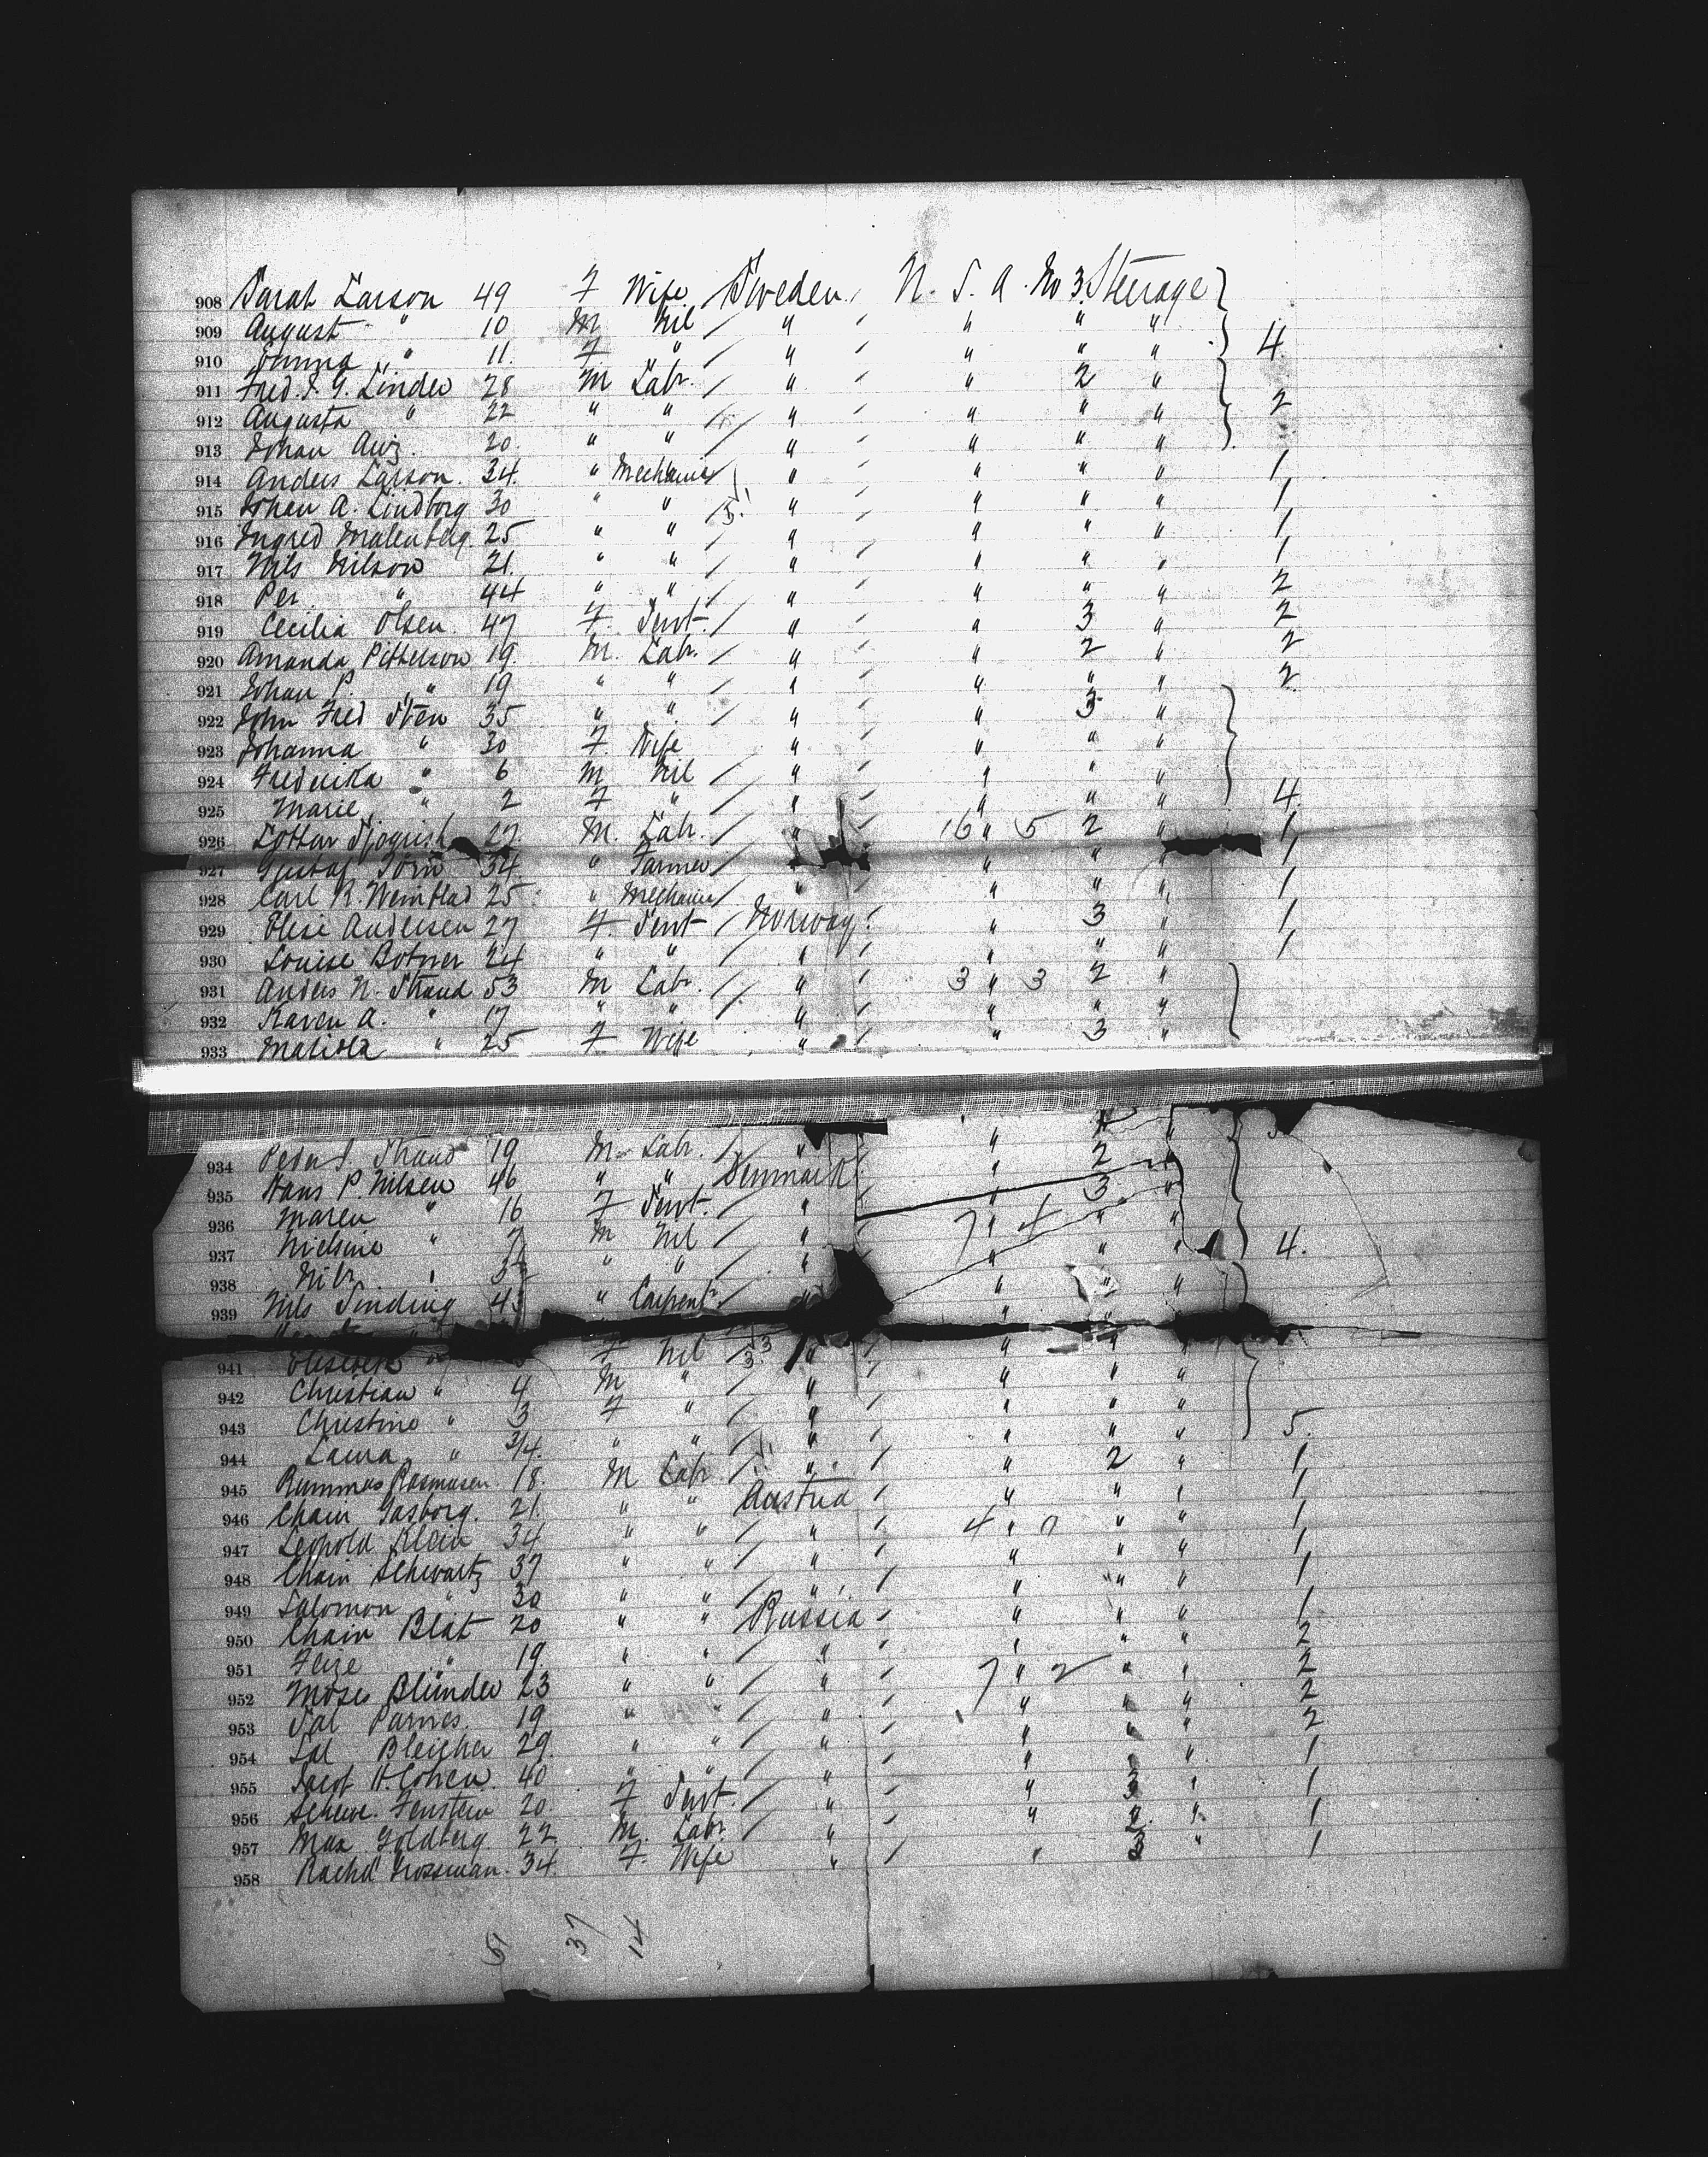 908 Sarah Larson 49 F Wife Sweden U. S. A. No 3. Steerage
909 August " 10 M Nil " " " "
910 Emma " 11. F " " " " " 4
911 Fred. J. G. Linder 28 M Labr. " " 2 "
912 Augusta " 22 " " " " " " 2
913 Johan Aug. 20. " " " " " "
914 Anders Larson. 34. " Mechanic " " " " 1
915 Johan A. Lindborg 30 " " " " " " 1
916 Ingred Malenberg. 25 " " " " " " 1
917 Nils Nilson 21. " " " " " " 1
918 Per " 44 " " " " " " 2
919 Cecilia Olsen. 47 F. Servt. " " 3 " 2
920 Amanda Pitterson 19 M. Labr. " " 2 " 2
921 Johan P. " 19 " " " " " " 2
922 John Fred Sten 35 " " " " 3 "
923 Johanna " 30 F. Wife " " " "
924 Frederika " 6 M Nil " " " "
925 Marie " 2 F " " " " " 4.
926 27 M. Labr. " 16 " 5 2 " 1
927 Gustaf 34. " Farmer " " " 1
928 Carl R. 25 " Mechanic " " " 1
929 Elise Andersen 27 F. Servt Norway " 3 " 1
930 Louise 24 " " " " " " 1
931 Anders N. Strand 53 M Labr. " 3 " 3 2 "
932 Karen A. " 17 " " " " " "
933 " 25 F Wife " " 3 "
934 Peder Strand 19 M Labr. " " 2 "
935 Hans P. Nilsen 46 " " Denmark " 3
936 Maren " 16 F Servt. " 7 " 4 " "
937 Nielsine " 7 M Nil " " " " 4.
938 " 3 " " " " " "
939 Nils Sinding 43 " Carpentr " " " "
941 Elisabeth " F Nil " " " "
942 Christian " 4 M " " " " "
943 Christine " 3 F " " " " " 5.
944 Laura " 3/4. " " " " 2 " 1
945 Rasmussen. 18. M Labr " " " " 1
946 Chain 21. " " Austria " " " 1
947 Leopold Klein 34 " " " 4 " " " 1
948 Chain Schwartz 37 " " " " " " 1
949 Salomon " 30 " " " " " " 1
950 Chain Blat 20 " " Russia " " " 2
951 " 19. " " " 7 " 2 " " 2
952 Moses Blünder 23 " " " " " " 2
953 Sal 19 " " " " " 2
954 Sal Bleicher 29. " " " " " " 1
955 Jacob H. Cohen. 40 " " " " 3 " 1
956 Fenstein 20. F Servt. " " 2. " 1
957 Max Goldberg. 22 M. Labr. " " 3 " 1
958 Rachel 34. F. Wife "
51 37 14